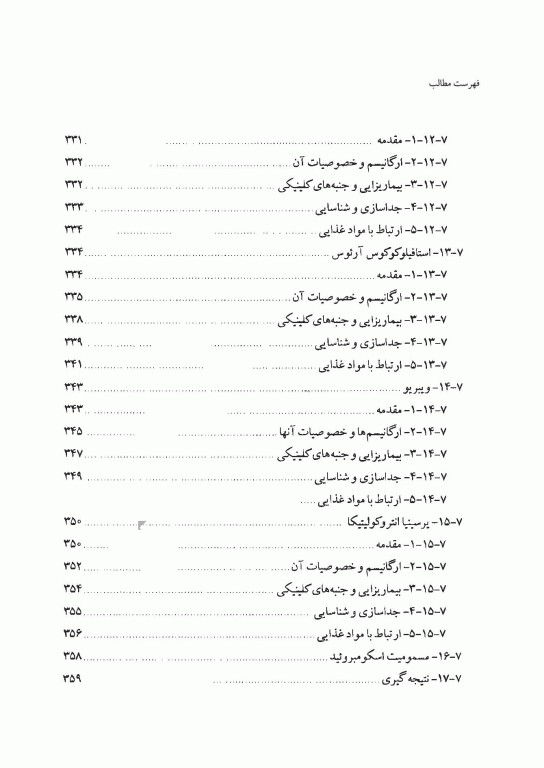 فهرست مطالب
۷-۱۲-۱- مقدمه ........ ۳۳۱
۷-۱۲-۲- ارگانیسم و خصوصیات آن ........ ۳۳۲
۷-۱۲-۳- بیماریزایی و جنبه‌های کلینیکی ........ ۳۳۲
۷-۱۲-۴- جداسازی و شناسایی ........ ۳۳۳
۷-۱۲-۵- ارتباط با مواد غذایی ........ ۳۳۴
۷-۱۳- استافیلوکوکوس آرئوس ........ ۳۳۴
۷-۱۳-۱- مقدمه ........ ۳۳۴
۷-۱۳-۲- ارگانیسم و خصوصیات آن ........ ۳۳۵
۷-۱۳-۳- بیماریزایی و جنبه‌های کلینیکی ........ ۳۳۸
۷-۱۳-۴- جداسازی و شناسایی ........ ۳۳۹
۷-۱۳-۵- ارتباط با مواد غذایی ........ ۳۴۱
۷-۱۴- ویبریو ........ ۳۴۳
۷-۱۴-۱- مقدمه ........ ۳۴۳
۷-۱۴-۲- ارگانیسم‌ها و خصوصیات آنها ........ ۳۴۵
۷-۱۴-۳- بیماریزایی و جنبه‌های کلینیکی ........ ۳۴۷
۷-۱۴-۴- جداسازی و شناسایی ........ ۳۴۹
۷-۱۴-۵- ارتباط با مواد غذایی .....
۷-۱۵- یرسینیا انتروکولیتیکا ........ ۳۵۰
۷-۱۵-۱- مقدمه ........ ۳۵۰
۷-۱۵-۲- ارگانیسم و خصوصیات آن ........ ۳۵۲
۷-۱۵-۳- بیماریزایی و جنبه‌های کلینیکی ........ ۳۵۴
۷-۱۵-۴- جداسازی و شناسایی ........ ۳۵۵
۷-۱۵-۵- ارتباط با مواد غذایی ........ ۳۵۶
۷-۱۶- مسمومیت اسکومبروئید ........ ۳۵۸
۷-۱۷- نتیجه گیری ........ ۳۵۹